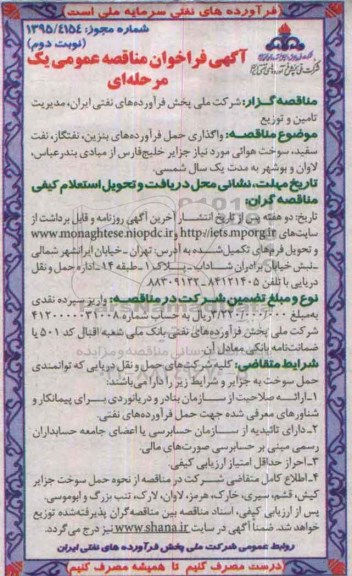 فرآورده های نفتی سرمایه ملی است
شماره مجوز: ۱۳۹۵/۴۱۵۴
(نوبت دوم)
آگهی فراخوان مناقصه عمومی یک
مرحله‌ای
مناقصه گزار: شرکت ملی پخش فرآورده‌های نفتی ایران، مدیریت
تامین و توزیع
موضوع مناقصه: واگذاری حمل فرآورده‌های بنزین، نفتگاز، نفت
سفید، سوخت هوائی مورد نیاز جزایر خلیج‌فارس از مبادی بندرعباس،
لاوان و بوشهر به مدت یک سال شمسی.
تاریخ مهلت، نشانی محل دریافت و تحویل استعلام کیفی
مناقصه گران:
تاریخ: دو هفته پس از تاریخ انتشار آخرین آگهی روزنامه و قابل برداشت از
سایت‌های http://iets.mporg.ir و www.monaghese.niopdc.ir
و تحویل فرم‌های تکمیل‌شده به آدرس: تهران ـ خیابان ایرانشهر شمالی
ـ نبش خیابان برادران شاداب ـ پلاک ۱ ـ طبقه ۱۴ ـ اداره حمل و نقل
دریایی با تلفن ۸۴۱۲۱۴۰۵ ـ ۸۸۳۰۹۱۳۲
نوع و مبلغ تضمین شرکت در مناقصه: واریز سپرده نقدی
به‌مبلغ ۳/۲۲۰/۰۰۰/۰۰۰ ریال به حساب شماره ۴۱۲۰۰۰۰۰۳۱۰۰۸
شرکت ملی پخش فرآورده‌های نفتی بانک ملی شعبه اقبال کد ۵۰۱ یا
ضمانت‌نامه بانکی معادل آن
شرایط متقاضی: کلیه شرکت‌های حمل و نقل دریایی که توانمندی
حمل سوخت به جزایر و شرایط زیر را دارا می‌باشند:
۱ـ ارائه صلاحیت از سازمان بنادر و دریانوردی برای پیمانکار و
شناورهای معرفی شده جهت حمل فرآورده‌های نفتی.
۲ـ دارای تائیدیه از سازمان حسابرسی یا اعضای جامعه حسابداران
رسمی مبنی بر حسابرسی صورت‌های مالی.
۳ـ احراز حداقل امتیاز ارزیابی کیفی.
۴ـ اطلاع کامل متقاضی شرکت در مناقصه از نحوه حمل سوخت جزایر
کیش، قشم، سیری، خارک، هرمز، لاوان، لارک، تنب بزرگ و ابوموسی.
پس از ارزیابی کیفی، اسناد مناقصه بین مناقصه‌گران پذیرفته‌شده توزیع
خواهد شد. ضمناً آگهی در سایت www.shana.ir نیز درج می‌گردد.
روابط عمومی شرکت ملی پخش فرآورده های نفتی ایران
درست مصرف کنیم تا همیشه مصرف کنیم